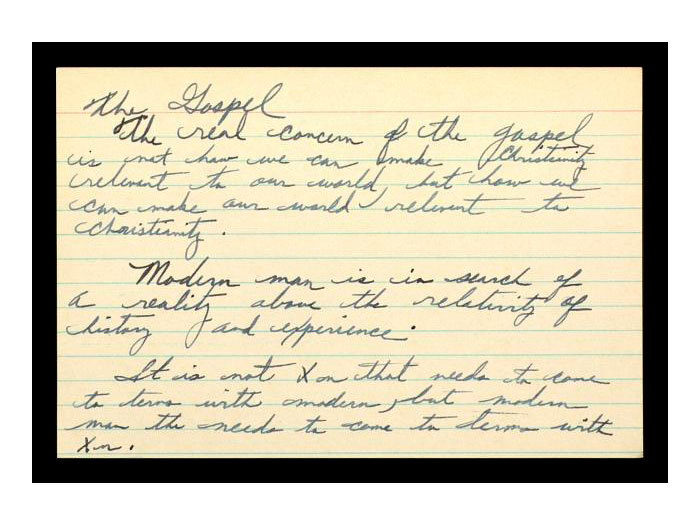 The Gospel
The real concern of the gospel
is not how we can make Christianity
relevant to our world, but how we
can make our world relevent to
Christianity.
Modern man is in search of
a reality above the relativity of
history and experience.
It is not Xn that needs to come
to terms with modern, but modern
man the needs to come to terms with
Xn.